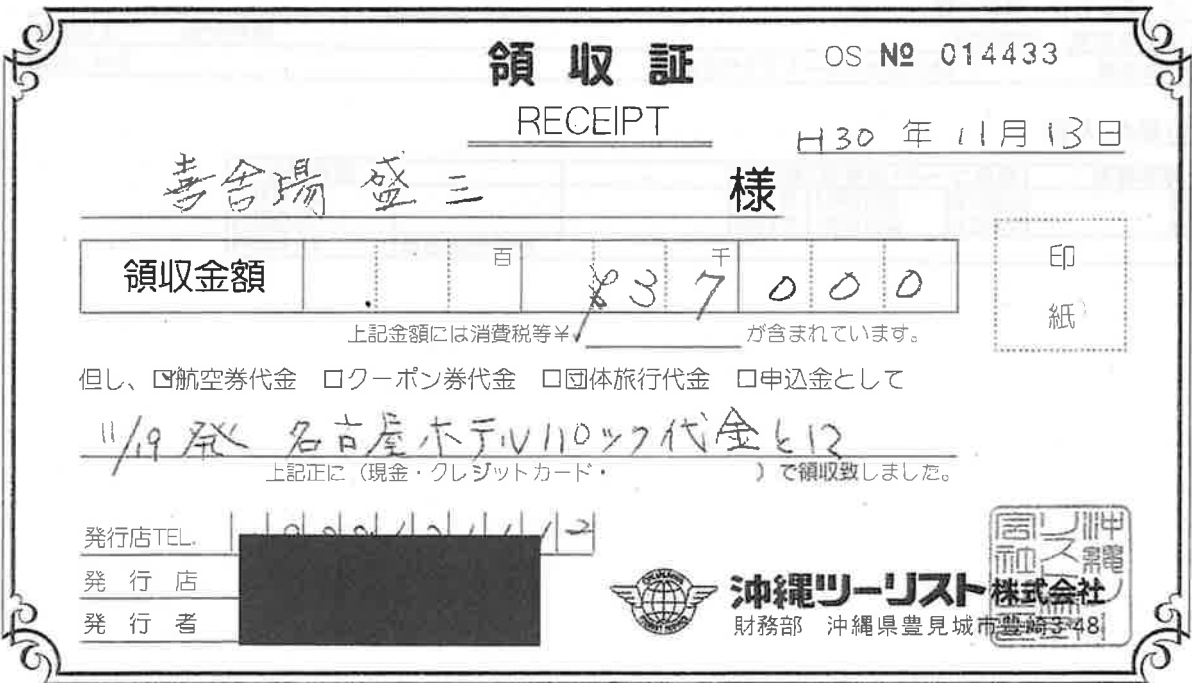 領収証
OS № 014433
RECEIPT
H30 年 11月 13日
喜舎場 盛三 様
領収金額 百 千 ¥37000
印紙
上記金額には消費税等¥ が含まれています。
但し、☑航空券代金 □クーポン券代金 □団体旅行代金 □申込金として
11/19発 名古屋ホテルパック代金として
上記正に（現金・クレジットカード・ ）で領収致しました。
発行店TEL.
発行店
発行者
沖縄ツーリスト株式会社
財務部 沖縄県豊見城市豊崎3-48